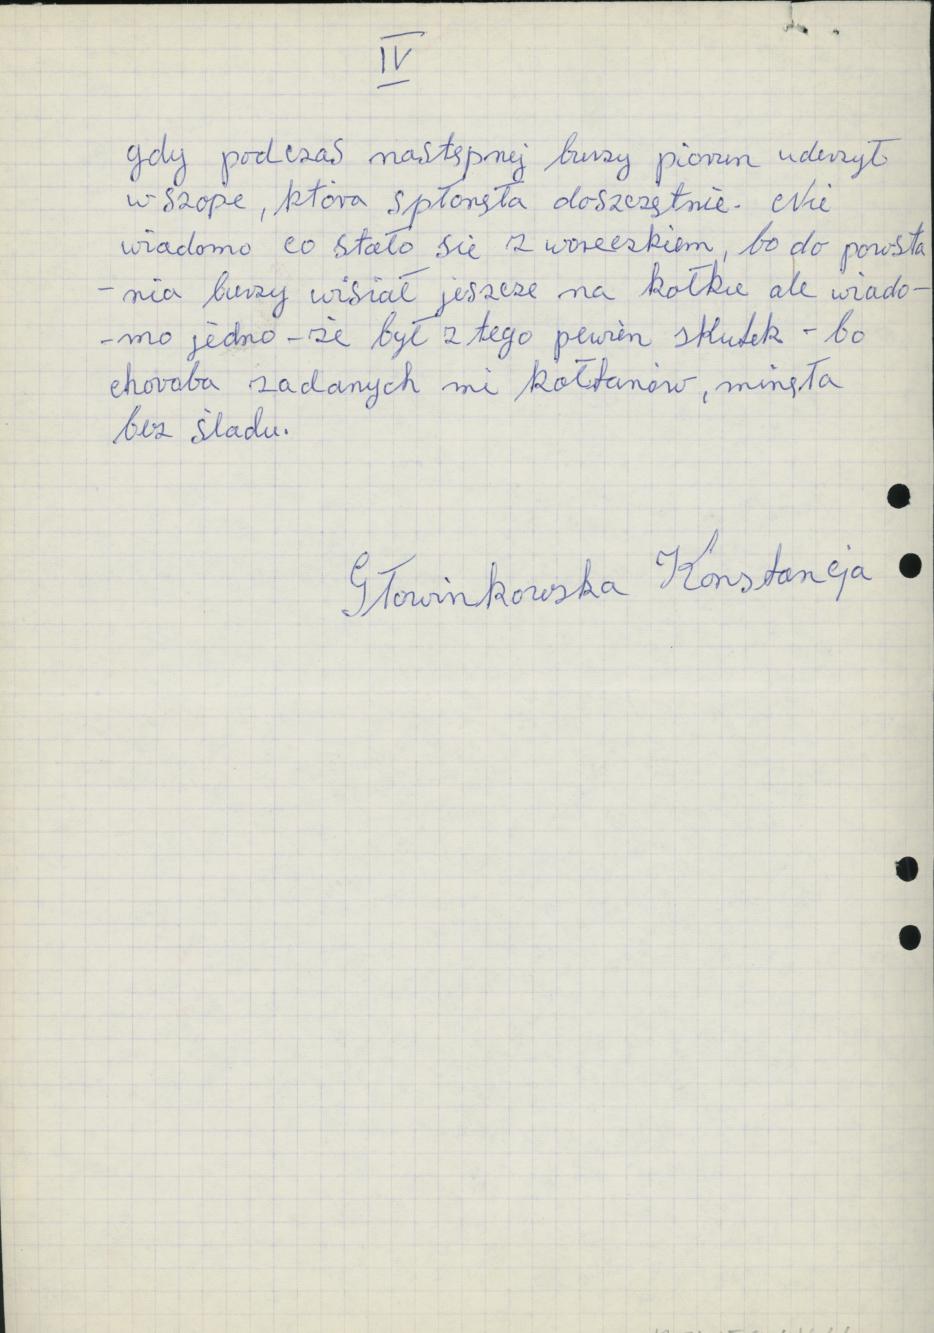 IV
gdy podczas następnej burzy piorun uderzył
w szope, która spłonęła doszczętnie. Nie
wiadomo co stało sie z woreczkiem, bo do powsta
-nia burzy wisiał jeszcze na kołku ale wiado-
-mo jedno - że był z tego pewien skutek - bo
choroba zadanych mi kołtanów, minęła
bez śladu.
Głowinkowska Konstancja